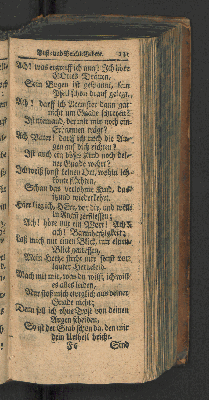 Buß- und Beicht-Gebete. 233
Ach! was ergreiff ich nun? Ich höre
GOttes Dräuen.
Sein Bogen ist gespannt, sein
Pfeil schon drauf gelegt,
Ach! darff ich Aermster dann gar
nicht um Gnade schreyen?
Ist niemand, der mit mir noch ein
Erbarmen trägt?
Ach Vater! darff ich noch die Au-
gen auf dich richten?
Ist auch ein böses Kind noch dei-
ner Gnade wehrt?
Ich weiß sonst keinen Ort, wohin ich
könte flüchten,
Schau das verlohrne Kind, das
wiederkehrt.
Hier lieg ich, HErr, vor dir, und will
in Angst zerfliessen;
Ach! höre nur ein Wort! Ach!
ach! Barmhertzigkeit!
Laß mich nur einen Blick, nur einen
Blick geniessen,
Mein Hertze stirbt mir sonst vor
lauter Hertzeleid.
Mach mit mir, was du wilst, ich will
es alles leiden,
Nur stoß mich ewiglich aus deiner
Gnade nicht;
Denn soll ich ohne Trost von deinen
Augen scheiden,
So ist der Grab schon da, den mir
dein Urtheil bricht.
Sind